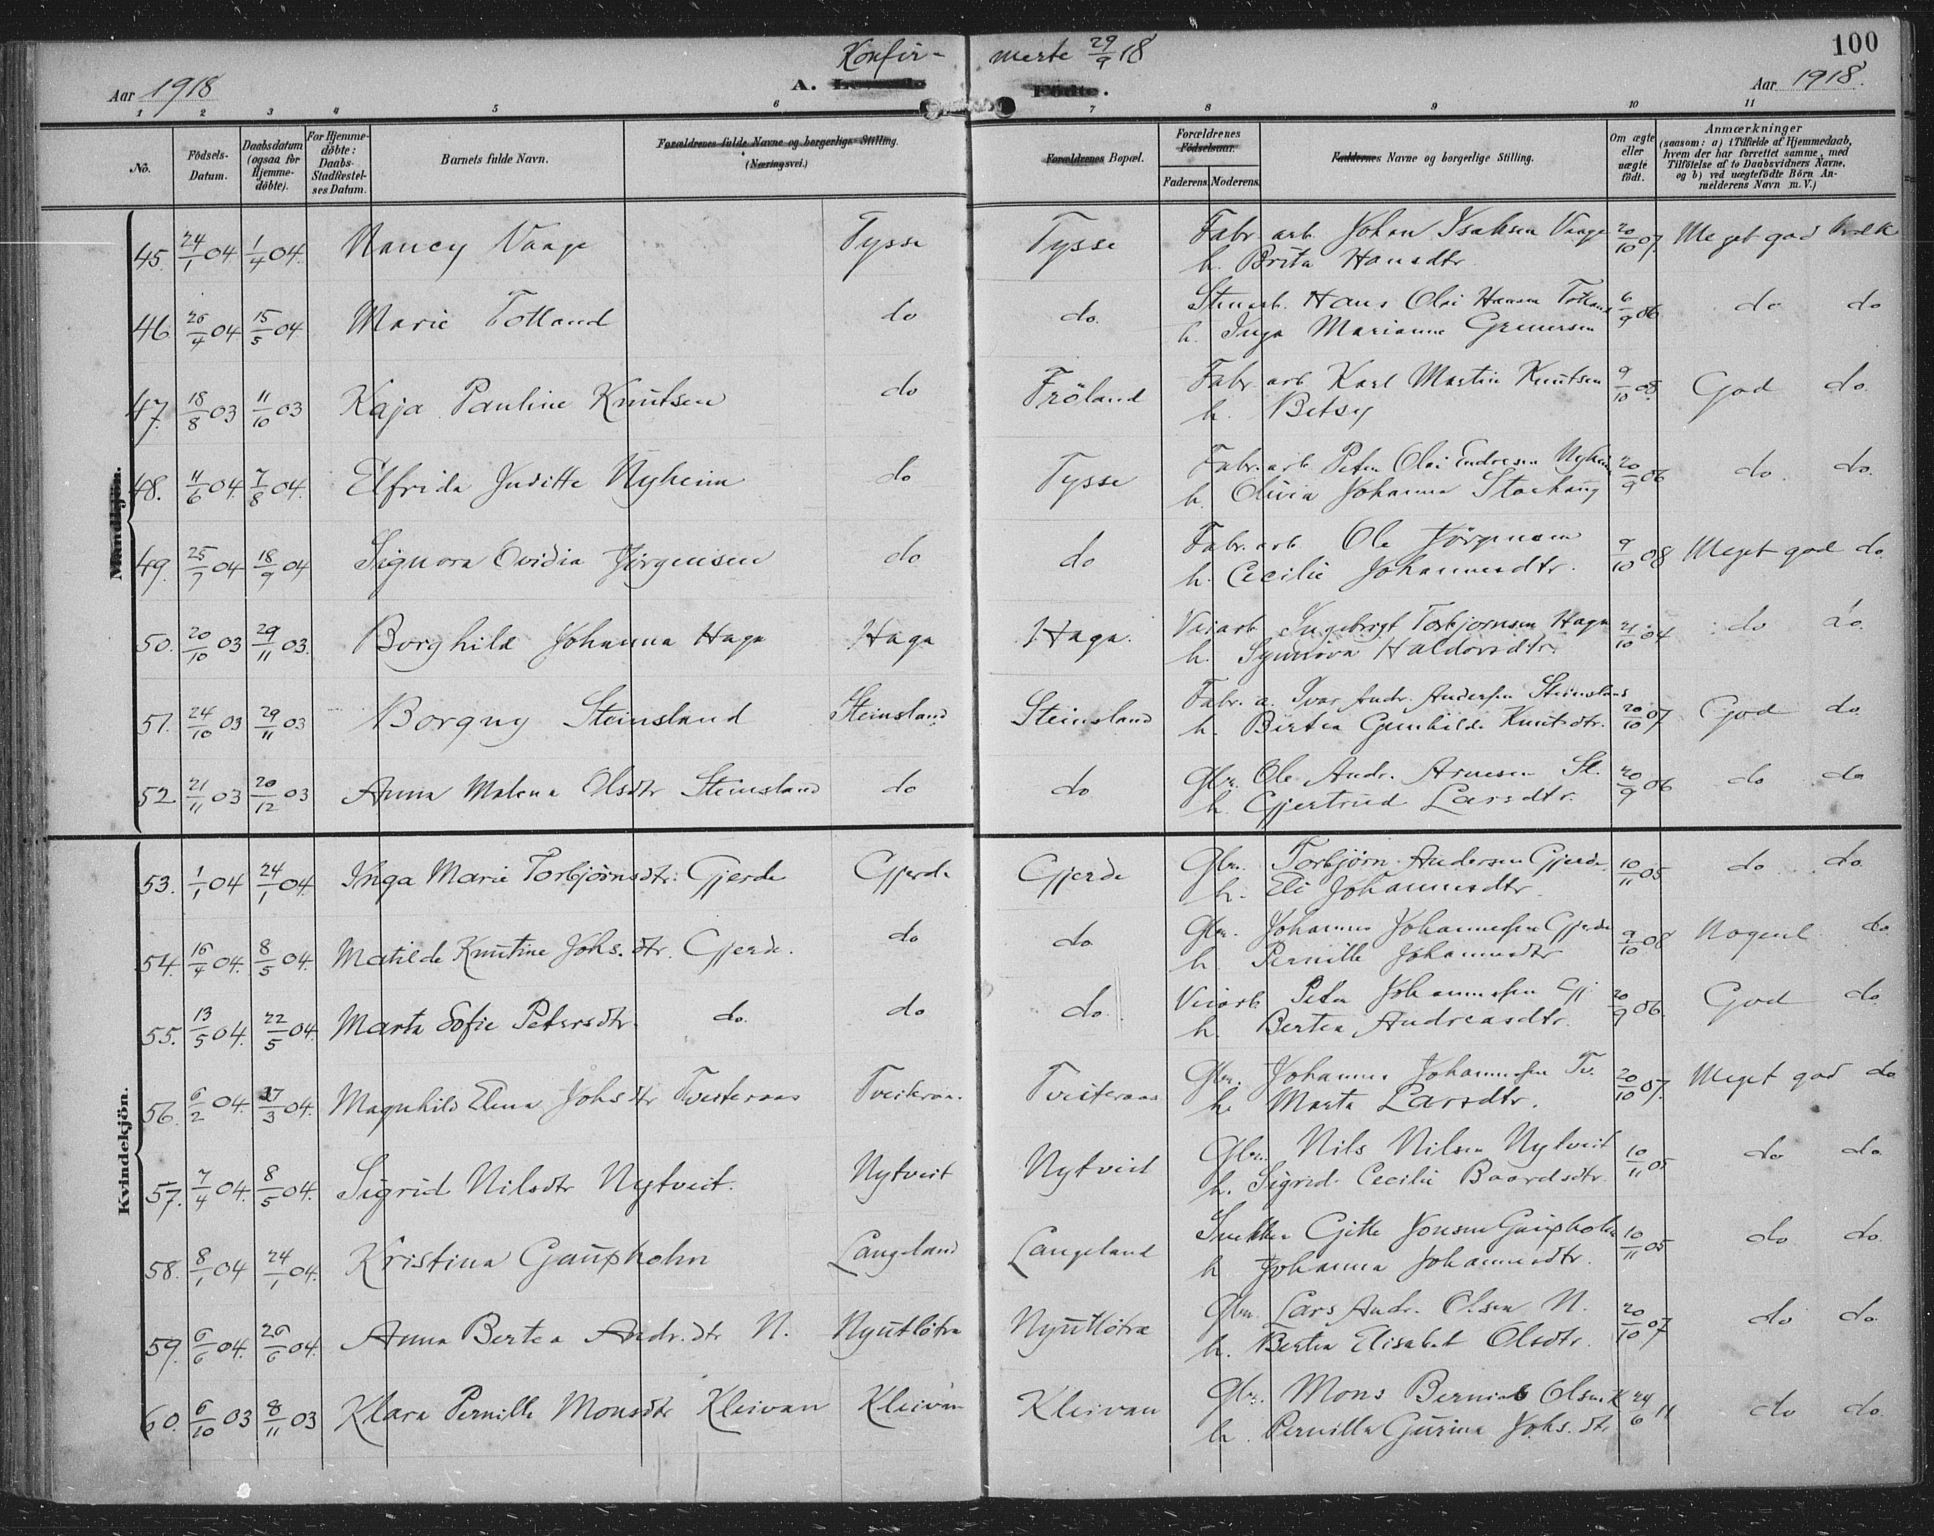 Konfir- merte 29/9 18
100
Aar 1918
A.
Födte.
Aar 1918.
1 2 3 4 5 6 7 8 9 10 11
No.
Födsels-Datum.
Daabsdatum (ogsaa for Hjemme-döbte).
For Hjemme-döbte: Daabs-Stadfæstel-ses Datum.
Barnets fulde Navn.
Forældrenes fulde Navne og borgerlige Stilling. (Næringsvei.)
Forældrenes Bopæl.
Forældrenes Födselsaar.
Faderens. Moderens.
Faddernes Navne og borgerlige Stilling.
Om ægte eller uægte födt.
Anmærkninger (saasom: a) i Tilfælde af Hjemmedaab, hvem der har forrettet samme, med Tilföielse af to Daabsvidners Navne, og b) ved uægtefödte Börn Anmelderens Navn m. V.)
Mandkjön.
45. 24/1 04 1/4 04. Nancy Vaage Tysse Tysse Fabr. arb. Johan Isaksen Vaage 20/10 07. Meget god
h. Brita Hansdtr.
46. 26/4 04 15/5 04. Marie Totland do do. Stenarb. Hans Olai Hansen Totland 6/9 06. do do
h. Inga Marianne
47. 18/8 03 11/10 03 Kaja Pauline Knutsen do Fröland Fabr. arb. Karl Martin Knutsen 9/10 05. God do.
h. Betsy
48. 11/6 04. 7/8 04. Elfrida Juditte Nyheim do Tysse Fabr. arb. Peter Olai Endresen Nyheim 20/9 06 do. do.
h. Olivia Johanna Storhaug
49. 25/7 04 18/9 04 Signora Ovidia Jörgensen do do Fabr. arb. Ole Jörgensen 9/10 08 Meget god do.
h. Cecilie Johannesdtr.
50. 20/10 03 29/11 03. Borghild Johanna Haga Haga Haga. Veiarb. Ingebrigt Torbjornsen Haga 21/10 04 do do.
h. Synnova Haldorsdtr.
51. 24/10 03 29/11 03 Borgny Steinsland Steinsland Steinsland Fabr. a. Ivar Andr. Andersen Steinsland 20/10 07 God do.
h. Bertea Gunhilde Knutsdtr.
52. 21/11 03 20/12 03 Anna Malena Olsdtr Steinsland do do Gbr. Ole Andr. Arnesen St. 20/9 06 do do
h. Gjertrud Larsdtr.
Kvindekjön.
53. 1/1 04 24/1 04. Inga Marie Torbjörnsdtr. Gjerde Gjerde Gjerde Gbr. Torbjörn Andersen Gjerde 10/11 05 do do.
h. Eli Johannesdtr.
54. 16/4 04. 8/5 04. Matilde Knutine Johs. dtr. Gjerde. do do Gbr. Johannes Johannessen Gjerde 9/10 08 Nogenl. do.
h. Pernille Johannesdtr
55. 13/5 04. 22/5 04. Marta Sofie Petersdtr. do. do do Veiarb. Peter Johannessen Gj. 20/9 06. God do
h. Bertea Andreasdtr.
56. 6/2 04. 27/3 04. Magnhild Elena Johsdtr Tveiteraas Tveiteraa. Tveiteraas Gbr. Johannes Johannessen Tv. 20/10 07. Meget god do
h. Marta Larsdtr.
57. 7/4 04. 8/5 04. Sigrid Nilsdtr Nytveit. Nytveit Nytveit Gbr. Nils Nilsen Nytveit 10/11 05 do do.
h. Sigrid Cecilie Baardsdtr.
58. 8/1 04 24/1 04. Kristina Gaupholm Langeland Langeland Snekker Gitle Jonsen Gaupholm 10/11 05 do do.
h Johanna Johannesdtr.
59. 6/6 04. 26/6 04. Anna Bertea Andr. dtr N. Nyutlötra Nyutlötræ Gbr. Lars Andr. Olsen N. 20/10 07 do do.
h. Bertea Elisabet Olsdtr.
60. 6/10 03 8/11 03 Klara Pernille Monsdtr Kleivan Kleivan Kleivan Gbr. Mons Olsen K 24/6 11 do do.
h. Pernilla Gurina Johs. dtr.